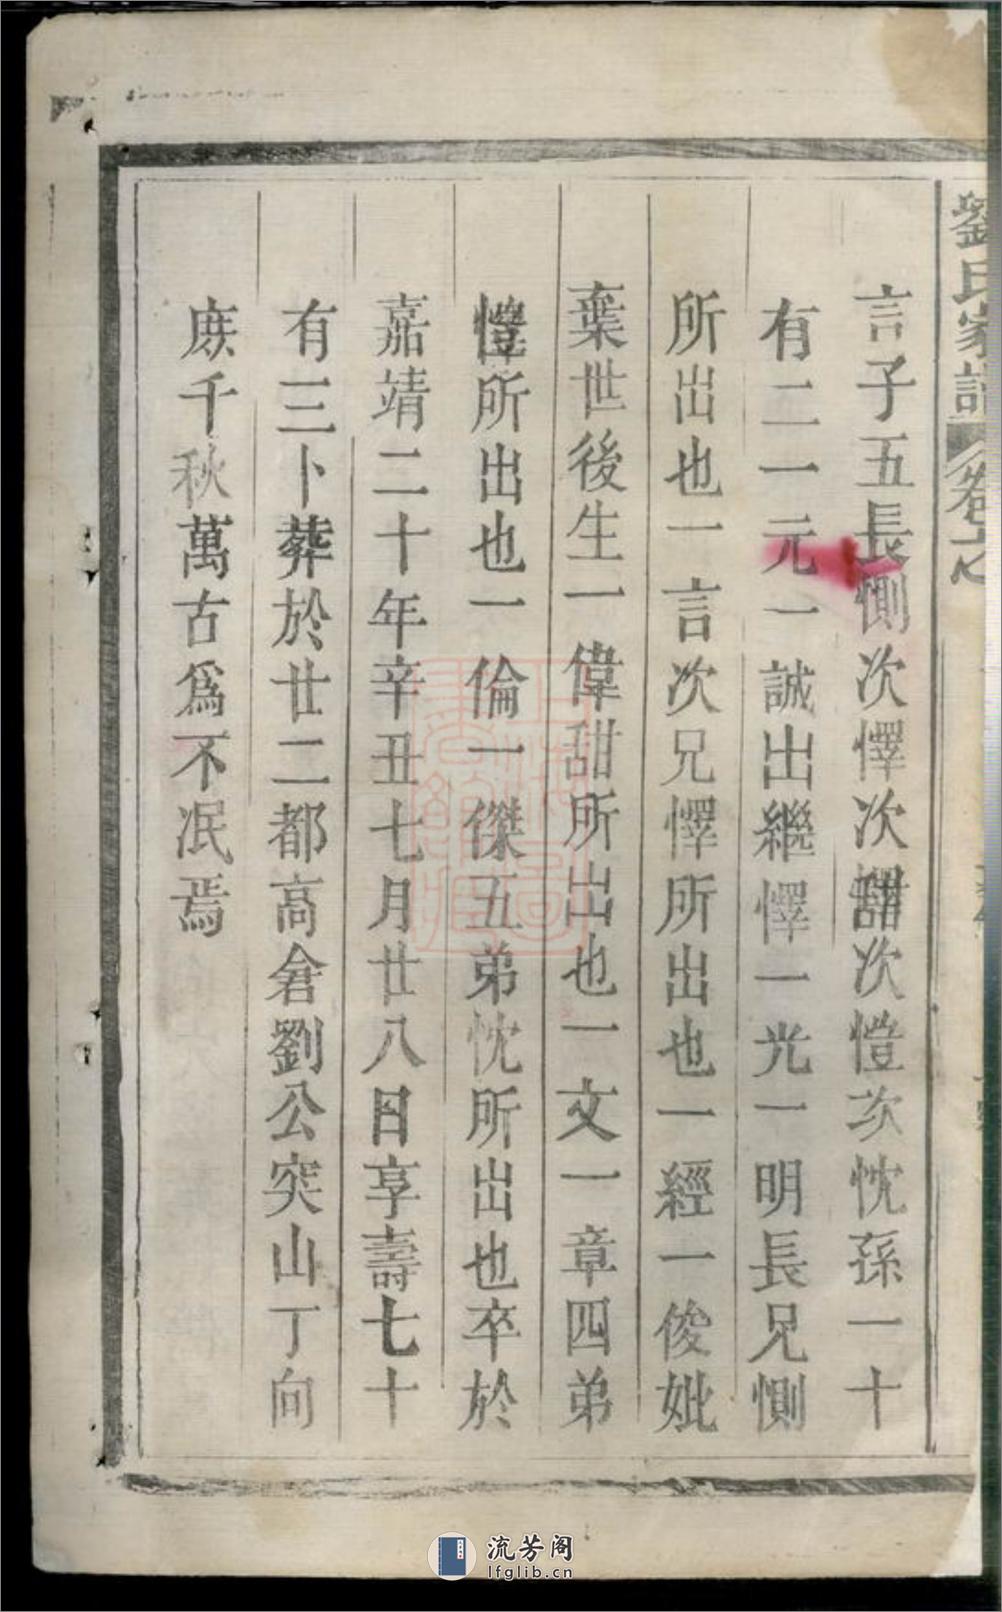 劉氏家譜 卷之
言子五長惻次懌次䛶次愷次忱孫一十
有二一元一誠出繼懌一光一明長兄惻
所出也一言次兄懌所出也一經一俊妣
葉世後生一偉甜所出也一文一章四弟
愷所出也一倫一傑五弟忱所出也卒於
嘉靖二十年辛丑七月廿八日享壽七十
有三卜葬於廿二都高倉劉公突山丁向
庶千秋萬古爲不泯焉
流芳阁
lfglib.cn